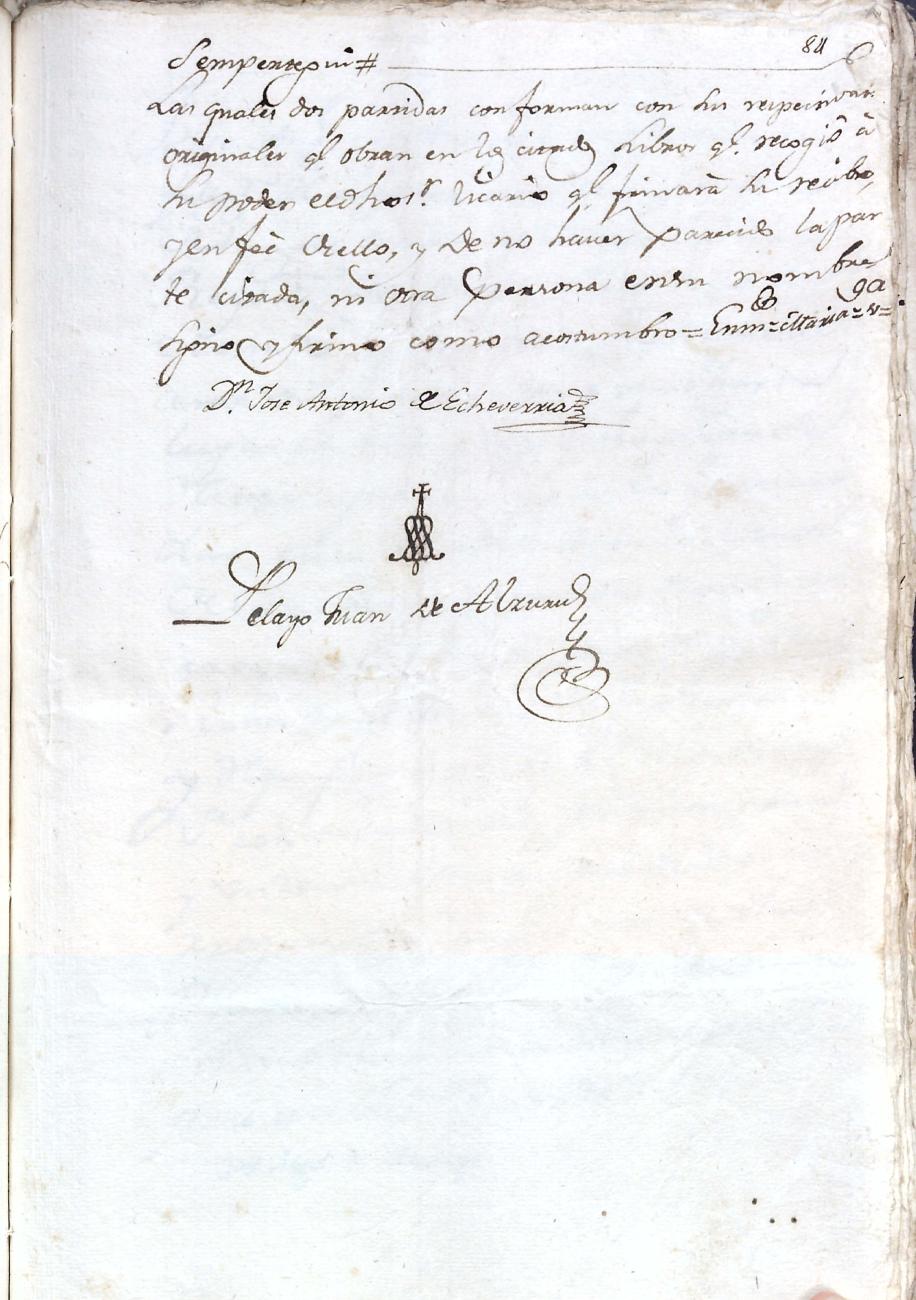 84
Sempertegui #
Las quales dos partidas conforman con sus respectivas
originales q.e obran en los citados Libros q.e recogio à
su poder el dho s.r Vicario q.e firmarà su recibo,
y en feè de ello, y de no haver parecido la par
te citada, ni otra persona en su nombre
signo y firmo como acostumbro = Enm.do = Maria = v = ga
D.n Jose Antonio de Echeverria
Pelayo Juan de